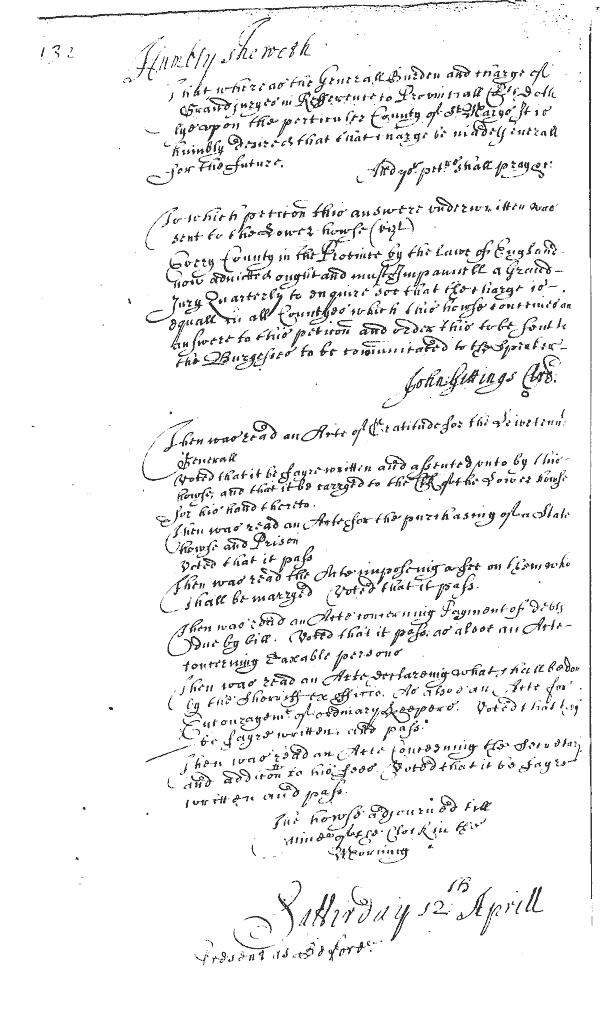 132
Humbly Sheweth
That whereas the Generall Burden and charge of
Grandjuryes in Refference to Provinciall Corts doth
lye upon the perticuler County of St Maryes It is
humbly desired that that charge be made Generall
for the future. And yor petrs shall pray &c
To which peticon this answere underwritten was
sent to the Lower howse (vizt)
Every County in the Province by the Lawe of England
now admitted ought and must Impannell a Grand
Jury Quarterly to enquire soe that the charge is
equall in all Countyes which this howse conceives an
answere to this peticon and order this to be sent to
the Burgesses to be comunicated to the Speaker
John Gittings Clre.
Then was read an Acte of Gratitude for the Leivetennt
Generall
Voted that it be fayre written and assented unto by this
howse, and that it be carryed to the of the Lower howse
for his hand thereto.
Then was read an Acte for the purchasing of a State
howse and Prison
Voted that it pass
Then was read the Acte imposeing a fee on them who
shall be marryed Voted that it pass.
Then was read an Acte concerning Payment of debts
due by bill. Voted that it pass. as alsoe an Acte
concerning taxable persons
Then was read an Acte declareing what shall be don
by the Sherriff ex officio. As also an Acte for
Encouragemt of ordinary Keepers. Voted that they
be fayre written and pass.
Then was read an Acte Concerning the Secretary
and addicon to his fees Voted that it be fayre
written and pass.
The howse adjourned till
nine of the Clock in the
Morning
Satturday 12th Aprill
Present as Before.